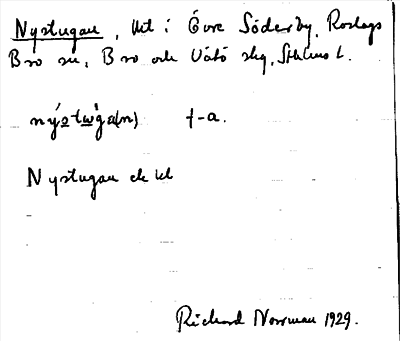 Nystugan, lht i Övre Söderby, Roslags
Bro sn, Bro och Vätö skg, Sthlms l.
nýstwga(n) f-a.
Nystugan ek
Richard Norrman 1929.